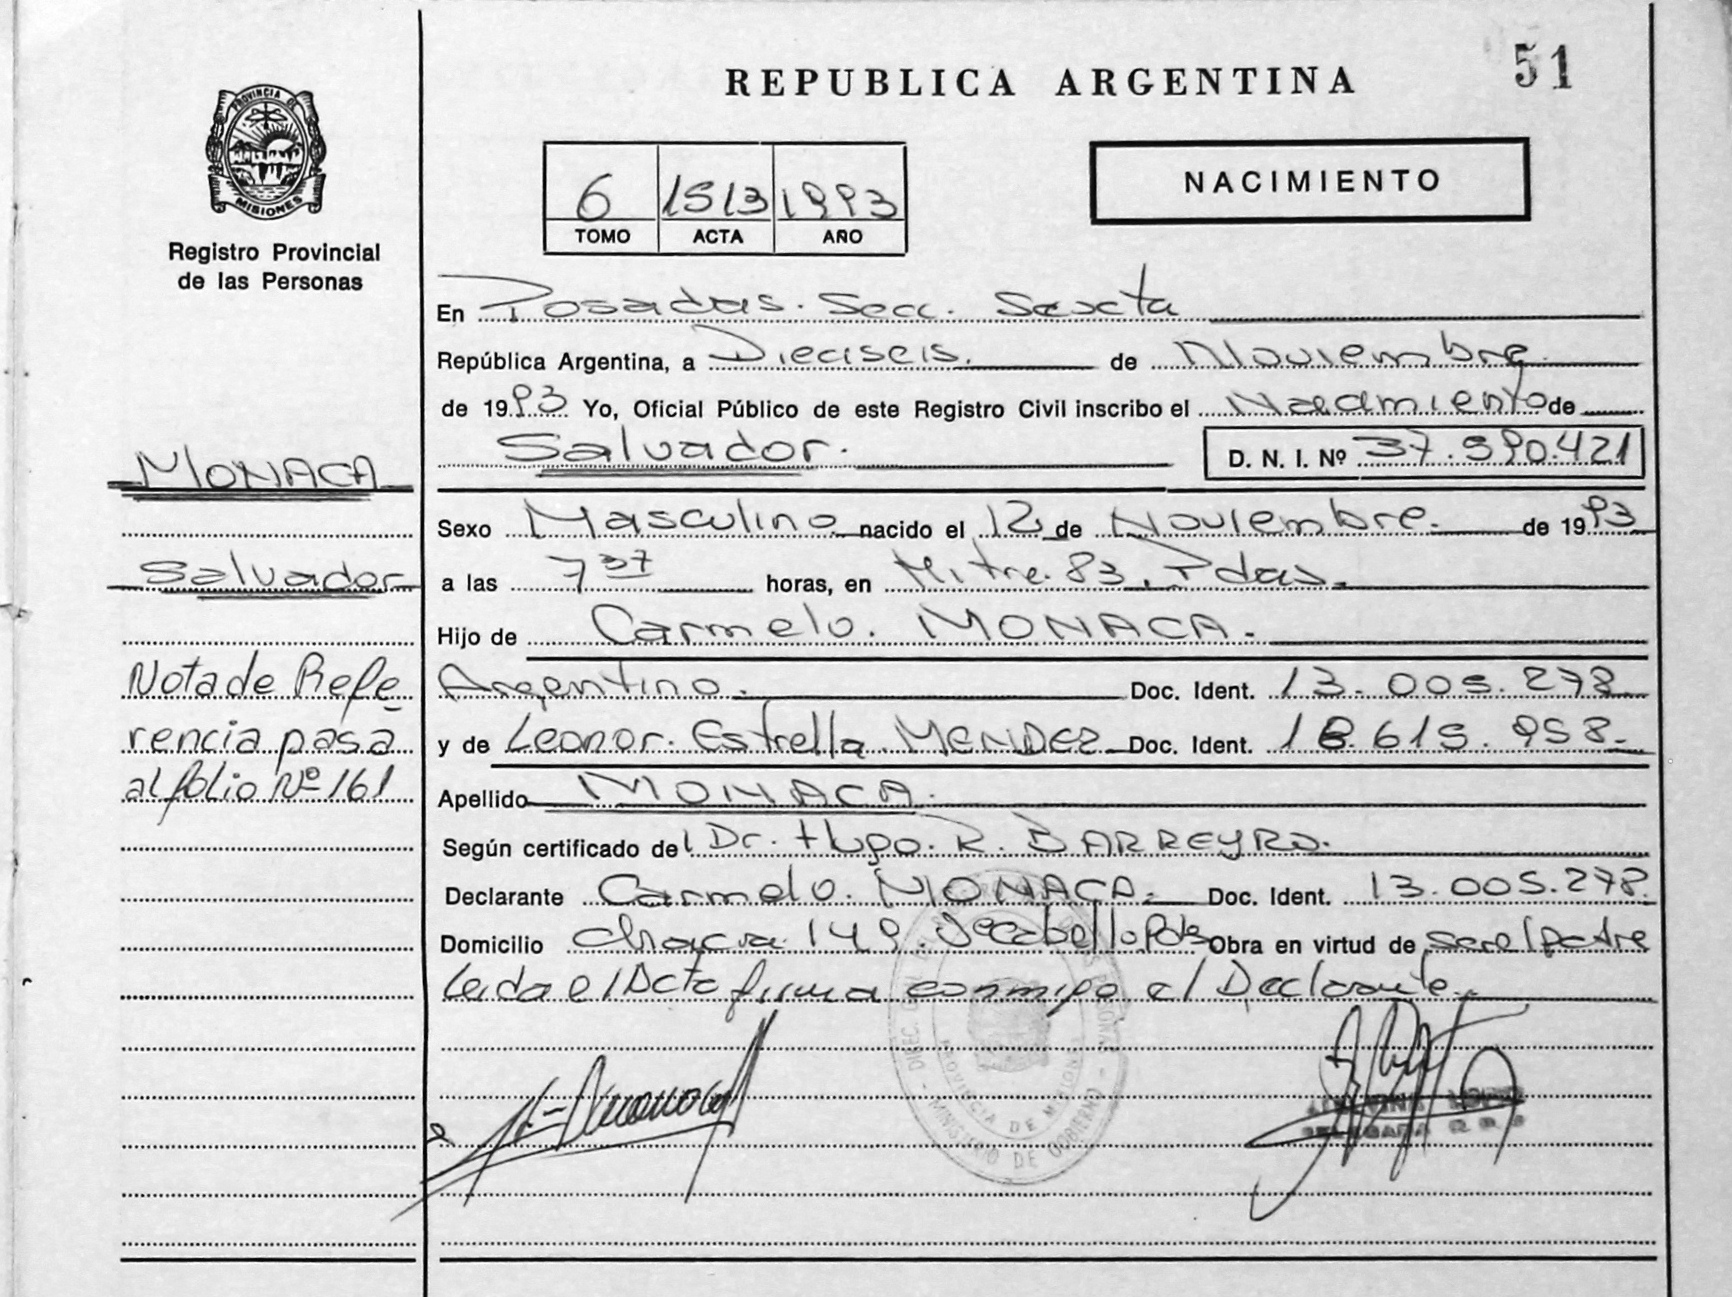 51
REPUBLICA ARGENTINA
PROVINCIA DE
MISIONES
Registro Provincial
de las Personas
6 1513 1993
TOMO ACTA AÑO
NACIMIENTO
En Posadas. Secc. Sexta
República Argentina, a Dieciseis. de Noviembre
de 1993 Yo, Oficial Público de este Registro Civil inscribo el Nacimiento de
Salvador. D. N. I. Nº 37.590.421
MONACA
Sexo Masculino nacido el 12 de Noviembre. de 1993
Salvador
a las 7 37 horas, en Mitre. 83. Pdas.
Hijo de Carmelo. MONACA.
Nota de Refe
rencia pasa
al folio Nº 161
Argentino. Doc. Ident. 13.005.278
y de Leonor. Estrella. MENDEZ Doc. Ident. 18.615.958.
Apellido MONACA.
Según certificado del Dr. Hugo. R. BARREYRO.
Declarante Carmelo. MONACA. Doc. Ident. 13.005.278
Domicilio chacra 149. Obra en virtud de ser el padre
Leida el Acta firma conmigo el Declarante.
PROVINCIA DE MISIONES
MINISTERIO DE GOBIERNO